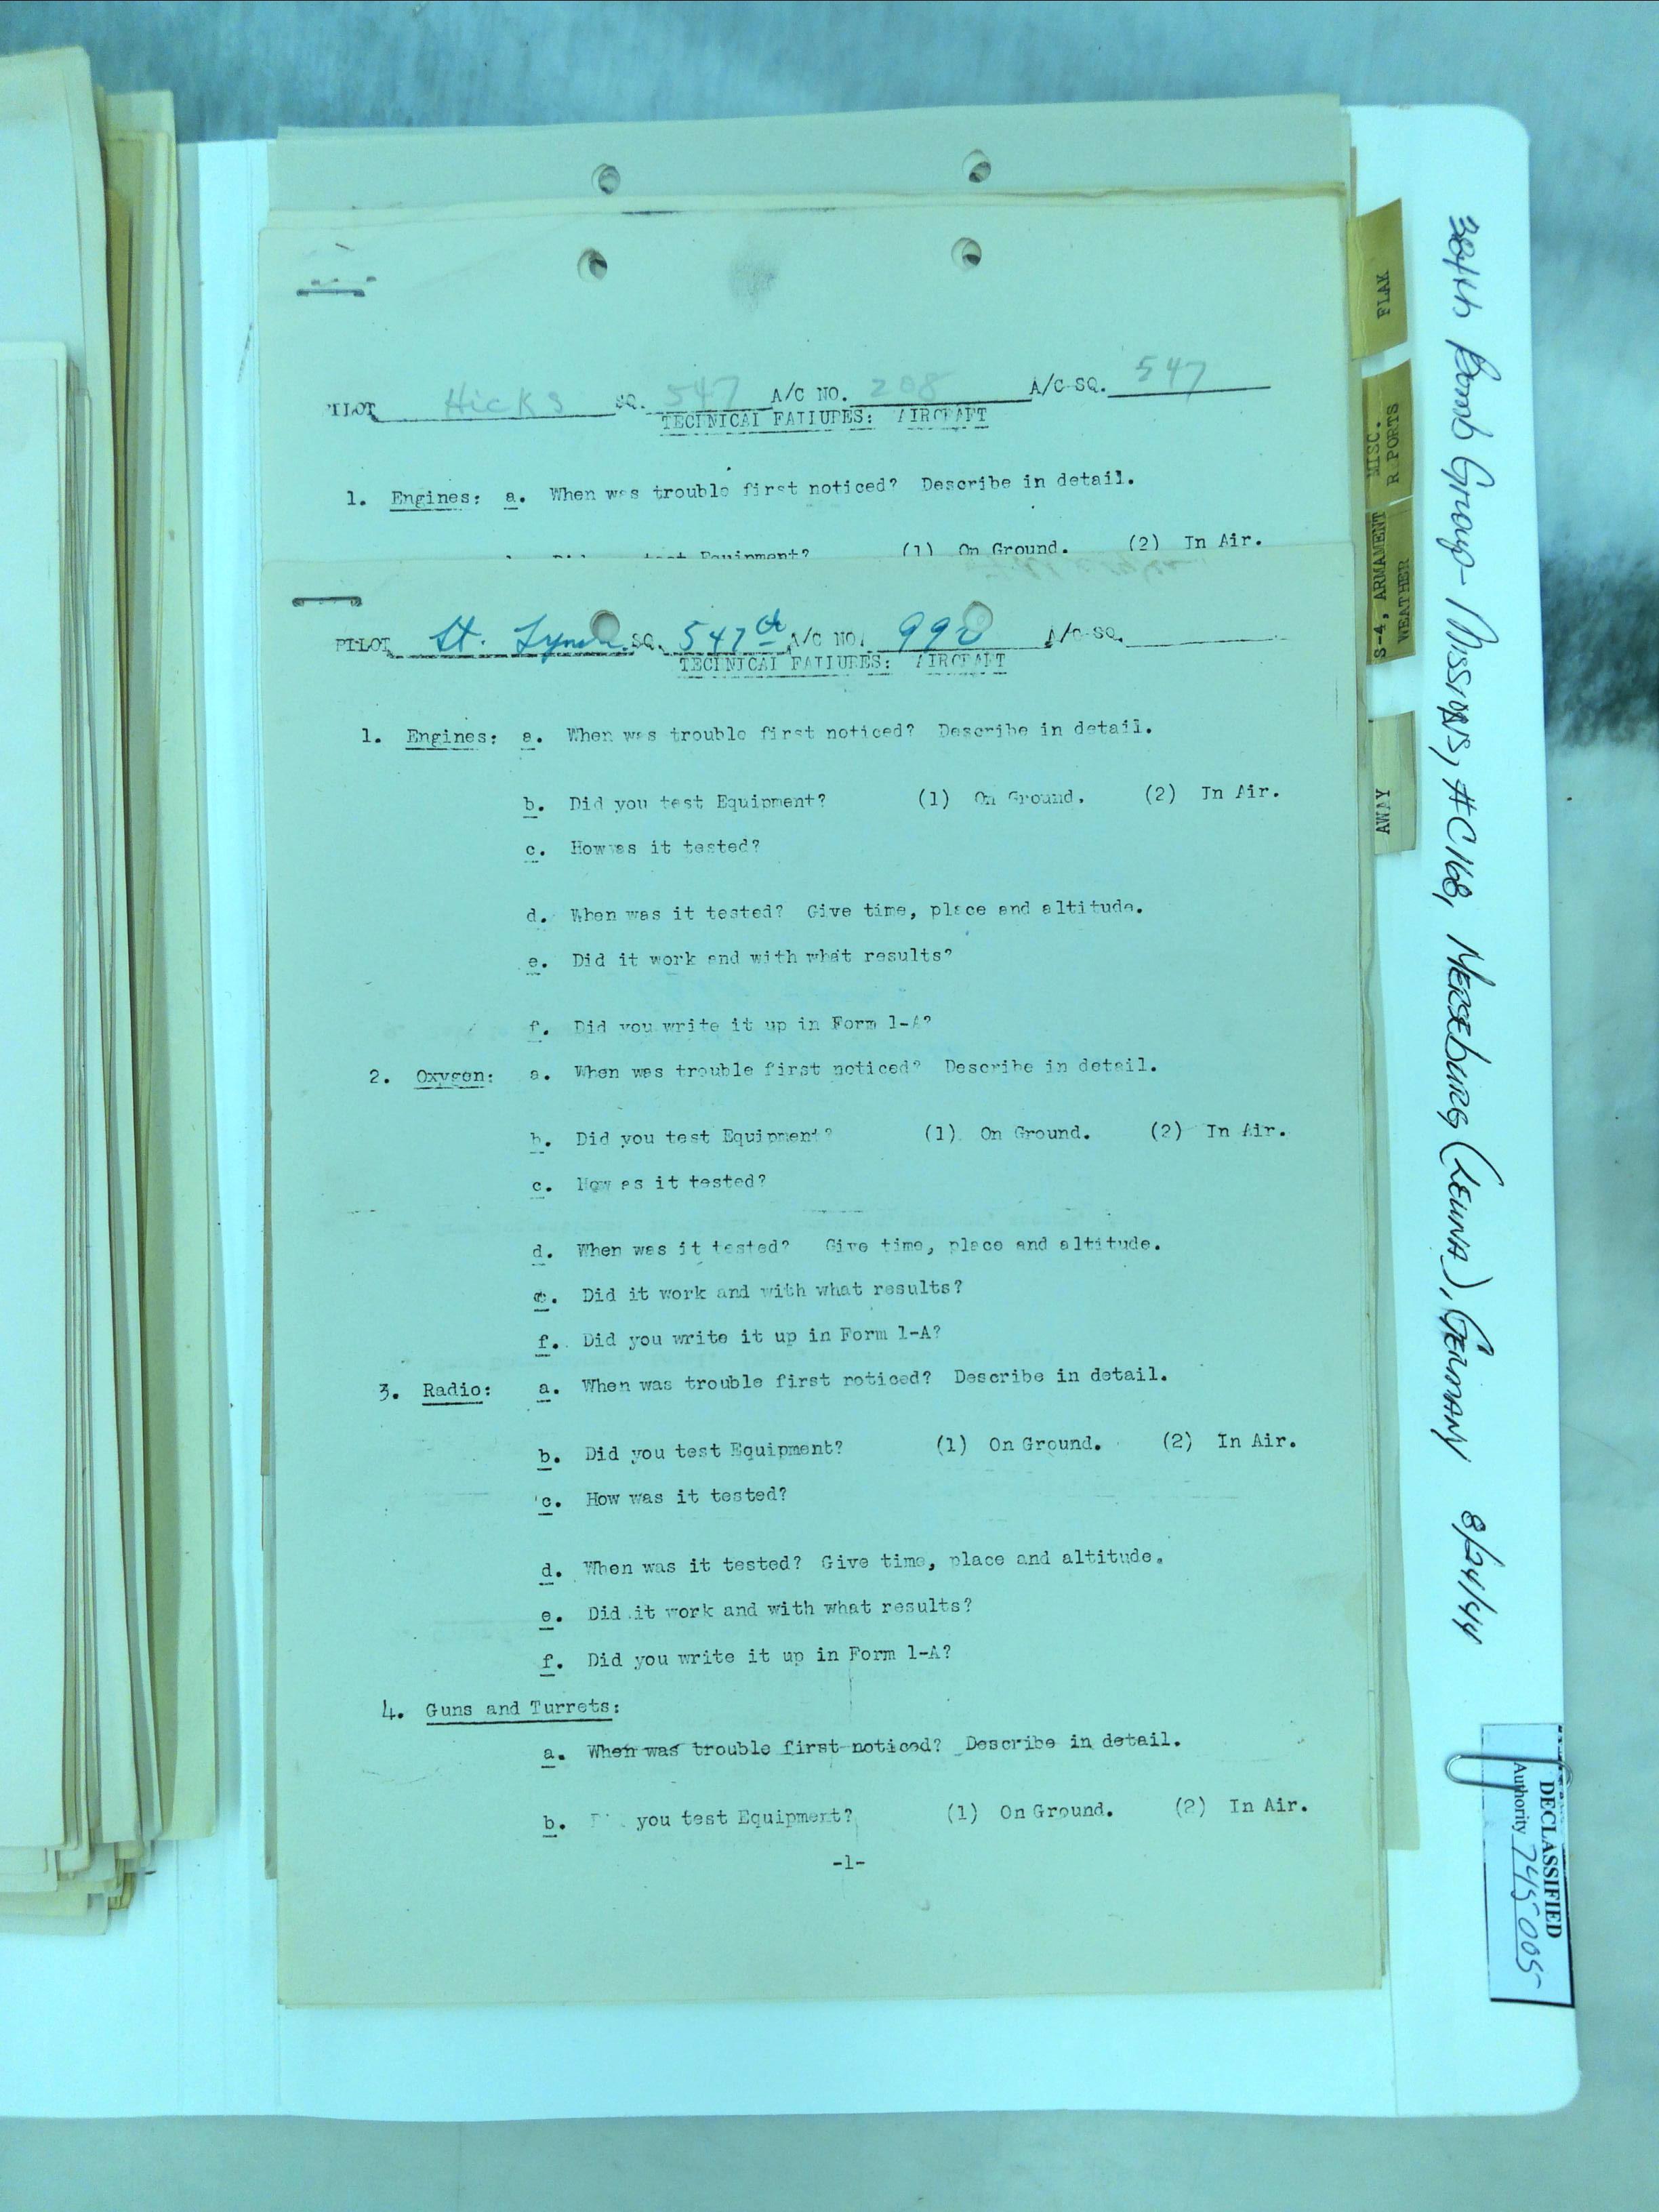 PILOT Hicks SQ. 547 A/C NO. 208 A/C SQ. 547
TECHNICAL FAILURES: AIRCRAFT
1. Engines: a. When was trouble first noticed? Describe in detail.
Equipment? (1) On Ground. (2) In Air.
PILOT Lt. Lynch SQ. 547th A/C NO. 990 A/C SQ.
TECHNICAL FAILURES: AIRCRAFT
1. Engines: a. When was trouble first noticed? Describe in detail.
b. Did you test Equipment? (1) On Ground. (2) In Air.
c. How as it tested?
d. When was it tested? Give time, place and altitude.
e. Did it work and with what results?
f. Did you write it up in Form 1-A?
2. Oxygen: a. When was trouble first noticed? Describe in detail.
b. Did you test Equipment? (1) On Ground. (2) In Air.
c. How as it tested?
d. When was it tested? Give time, place and altitude.
e. Did it work and with what results?
f. Did you write it up in Form 1-A?
3. Radio: a. When was trouble first noticed? Describe in detail.
b. Did you test Equipment? (1) On Ground. (2) In Air.
c. How was it tested?
d. When was it tested? Give time, place and altitude.
e. Did it work and with what results?
f. Did you write it up in Form 1-A?
4. Guns and Turrets:
a. When was trouble first noticed? Describe in detail.
b. you test Equipment? (1) On Ground. (2) In Air.
-1-
FLAK
MISC.
R PORTS
S-4, ARMAMENT
WEATHER
AWAY
384th Bomb Group - Missions, #C168, Merseburg (Leuna), Germany 8/24/44
DECLASSIFIED
Authority 745005